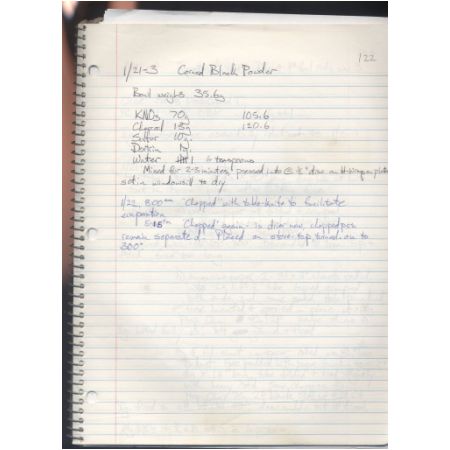 122
1/21-3 Corned Black Powder
Bowl weighs 35.6g
KNO3 70g 105.6
Charcoal 15g 120.6
Sulfur 10g
Dextrin
Water 6 teaspoons
Mixed for 2-3 minutes, pressed into disc on plate
set in windowsill to dry
1/22, 800 "Chopped" with table knife to facilitate
evaporation
515 "Chopped" again - is drier now, chopped pcs
remain separated. Placed on stove-top turned on to
300°